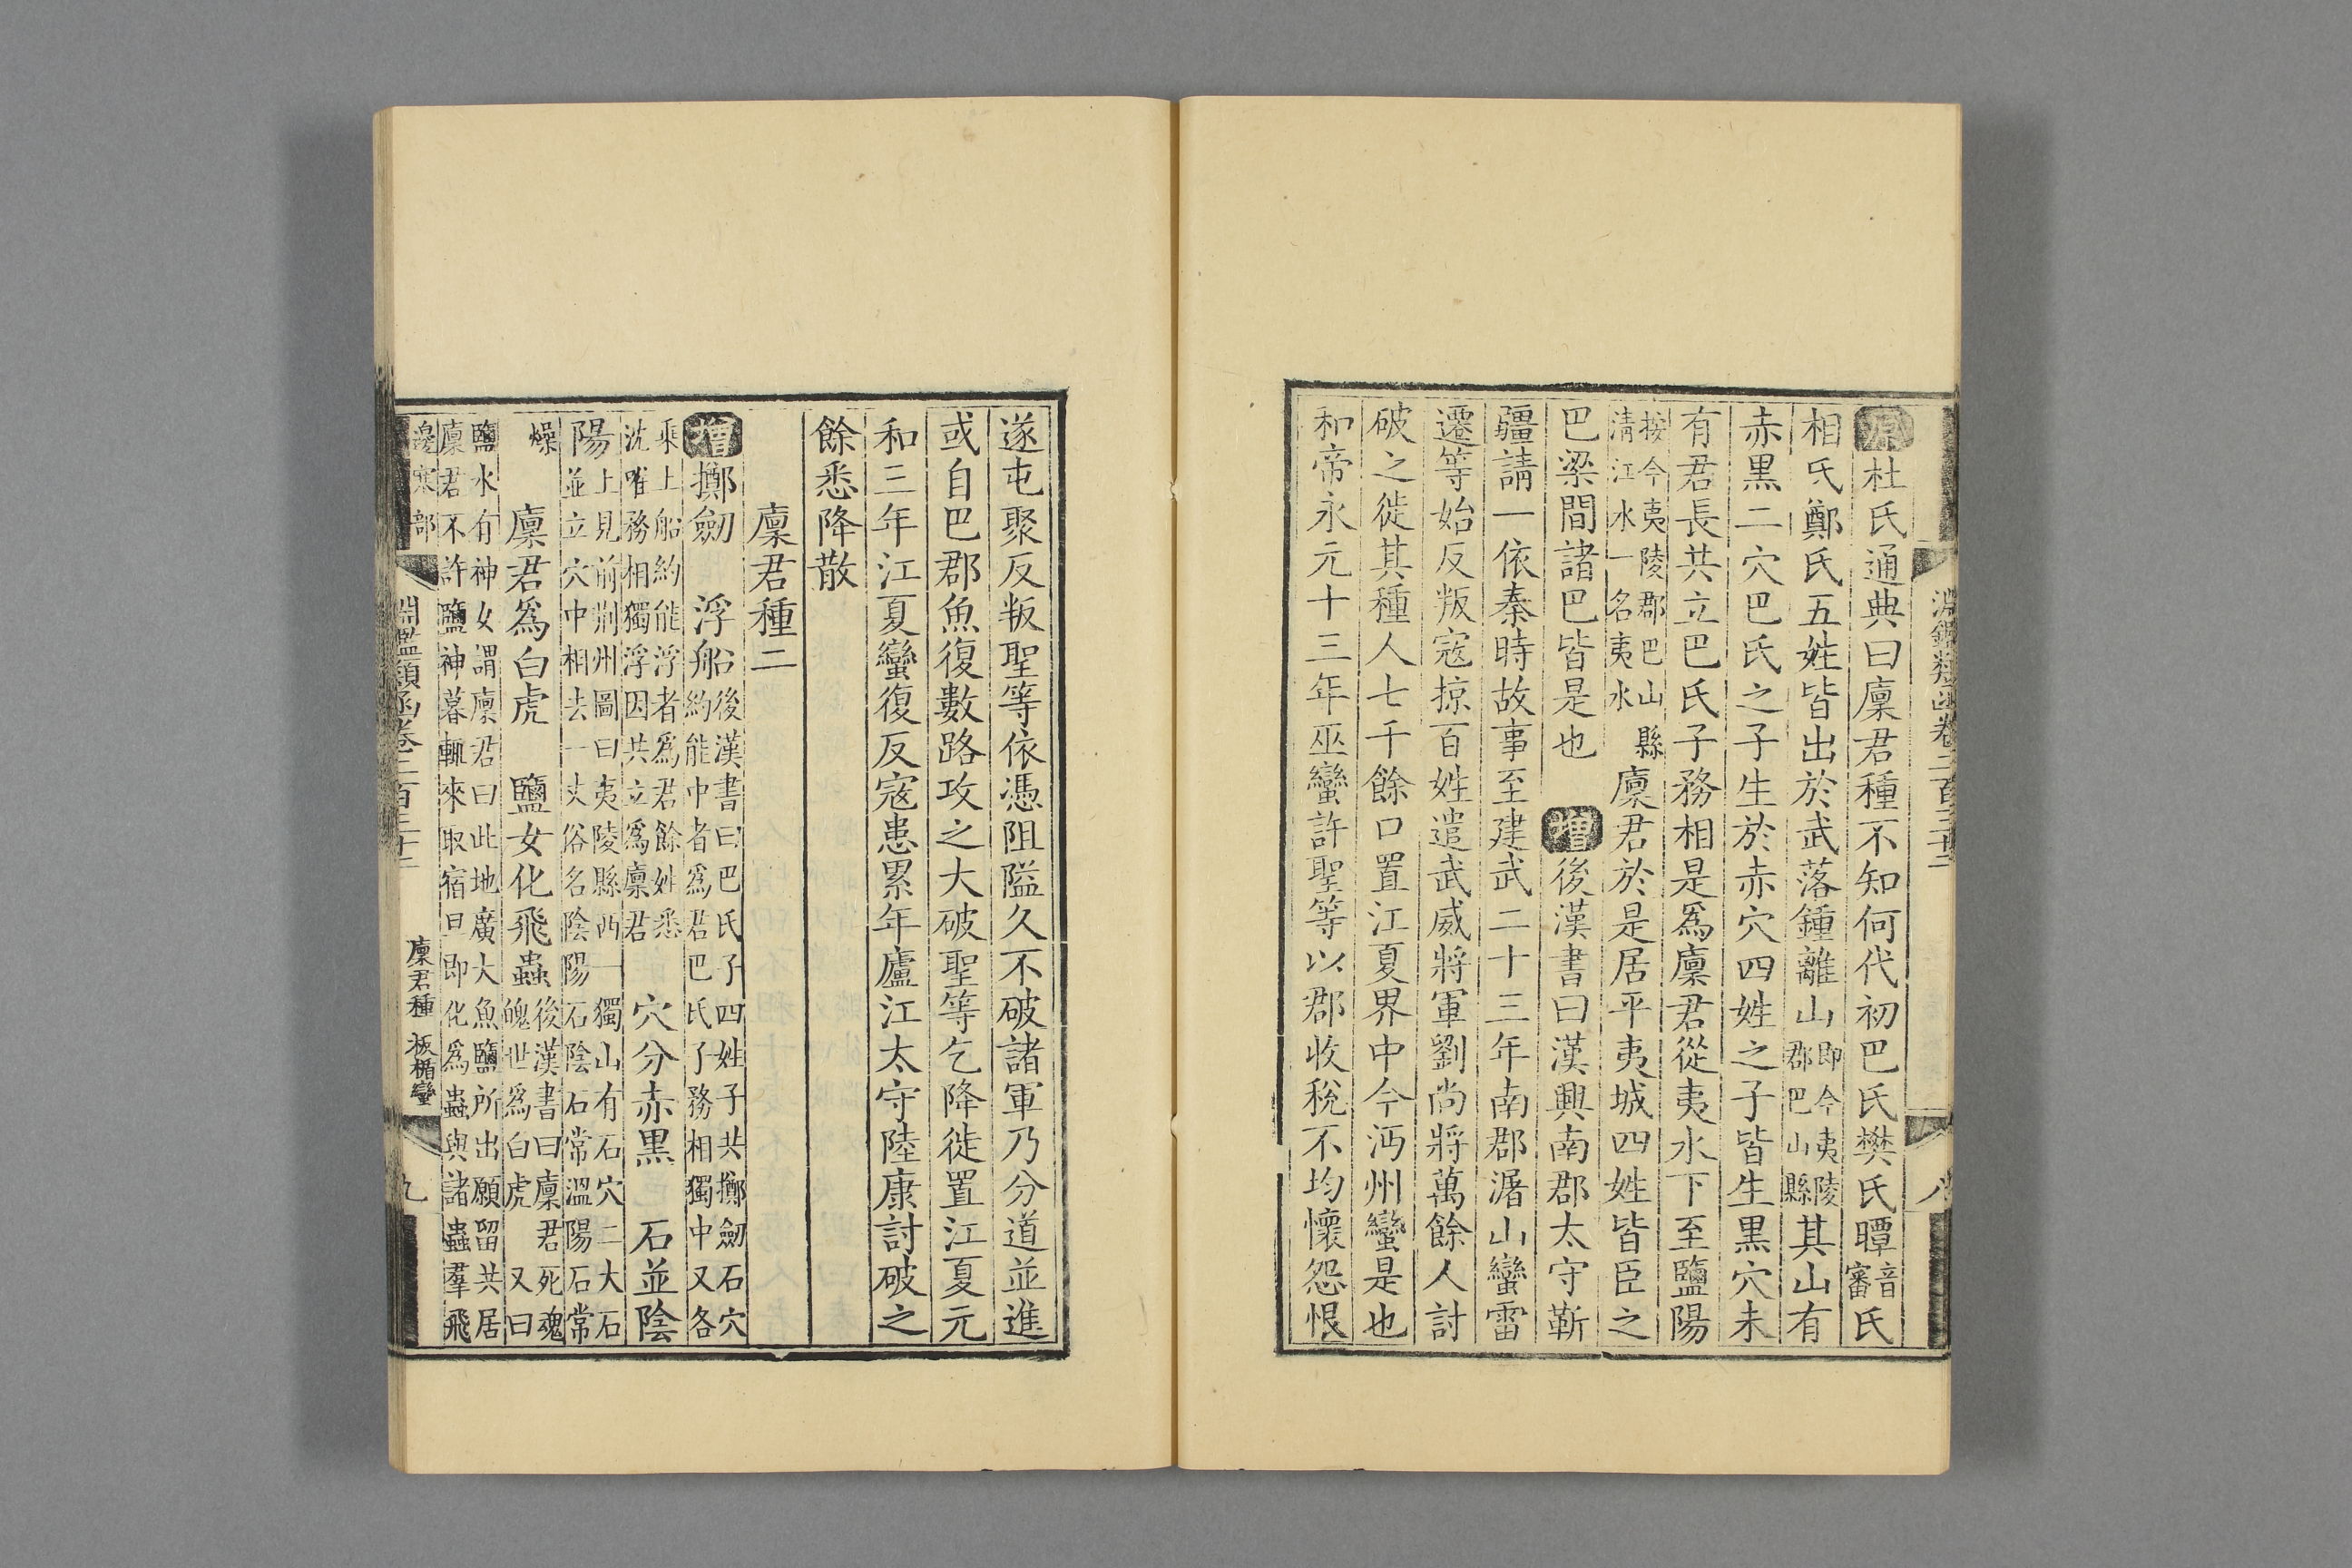 淵鑑類函卷二百三十二
八
原杜氏通典曰廩君種不知何代初巴氏樊氏瞫音審氏
相氏鄭氏五姓皆出於武落鍾離山即今夷陵郡巴山縣其山有
赤黑二穴巴氏之子生於赤穴四姓之子皆生黑穴未
有君長共立巴氏子務相是爲廩君從夷水下至鹽陽
按今夷陵郡巴山縣清江水一名夷水廩君於是居平夷城四姓皆臣之
巴梁間諸巴皆是也增後漢書曰漢興南郡太守靳
疆請一依秦時故事至建武二十三年南郡潳山蠻雷
遷等始反叛寇掠百姓遣武威將軍劉尚將萬餘人討
破之徙其種人七千餘口置江夏界中今沔州蠻是也
和帝永元十三年巫蠻許聖等以郡收稅不均懷怨恨
遂屯聚反叛聖等依憑阻隘久不破諸軍乃分道並進
或自巴郡魚復數路攻之大破聖等乞降徙置江夏元
和三年江夏蠻復反寇患累年廬江太守陸康討破之
餘悉降散
廩君種二
增擲劒 浮船後漢書曰巴氏子四姓子共擲劒石穴約能中者爲君巴氏子務相獨中又各
乘上船約能浮者爲君餘姓悉沈唯務相獨浮因共立爲廩君 穴分赤黑 石並陰
陽上見前荆州圖曰夷陵縣西一獨山有石穴二大石並立穴中相去一丈俗名陰陽石陰石常溫陽石常
燥 廩君爲白虎 鹽女化飛蟲後漢書曰廩君死魂魄世爲白虎 又曰
鹽水有神女謂廩君曰此地廣大魚鹽所出願留共居廩君不許鹽神暮輒來取宿旦即化爲蟲與諸蟲羣飛
邊塞部
淵鑑類函卷二百三十二
廩君種 板楯蠻
九